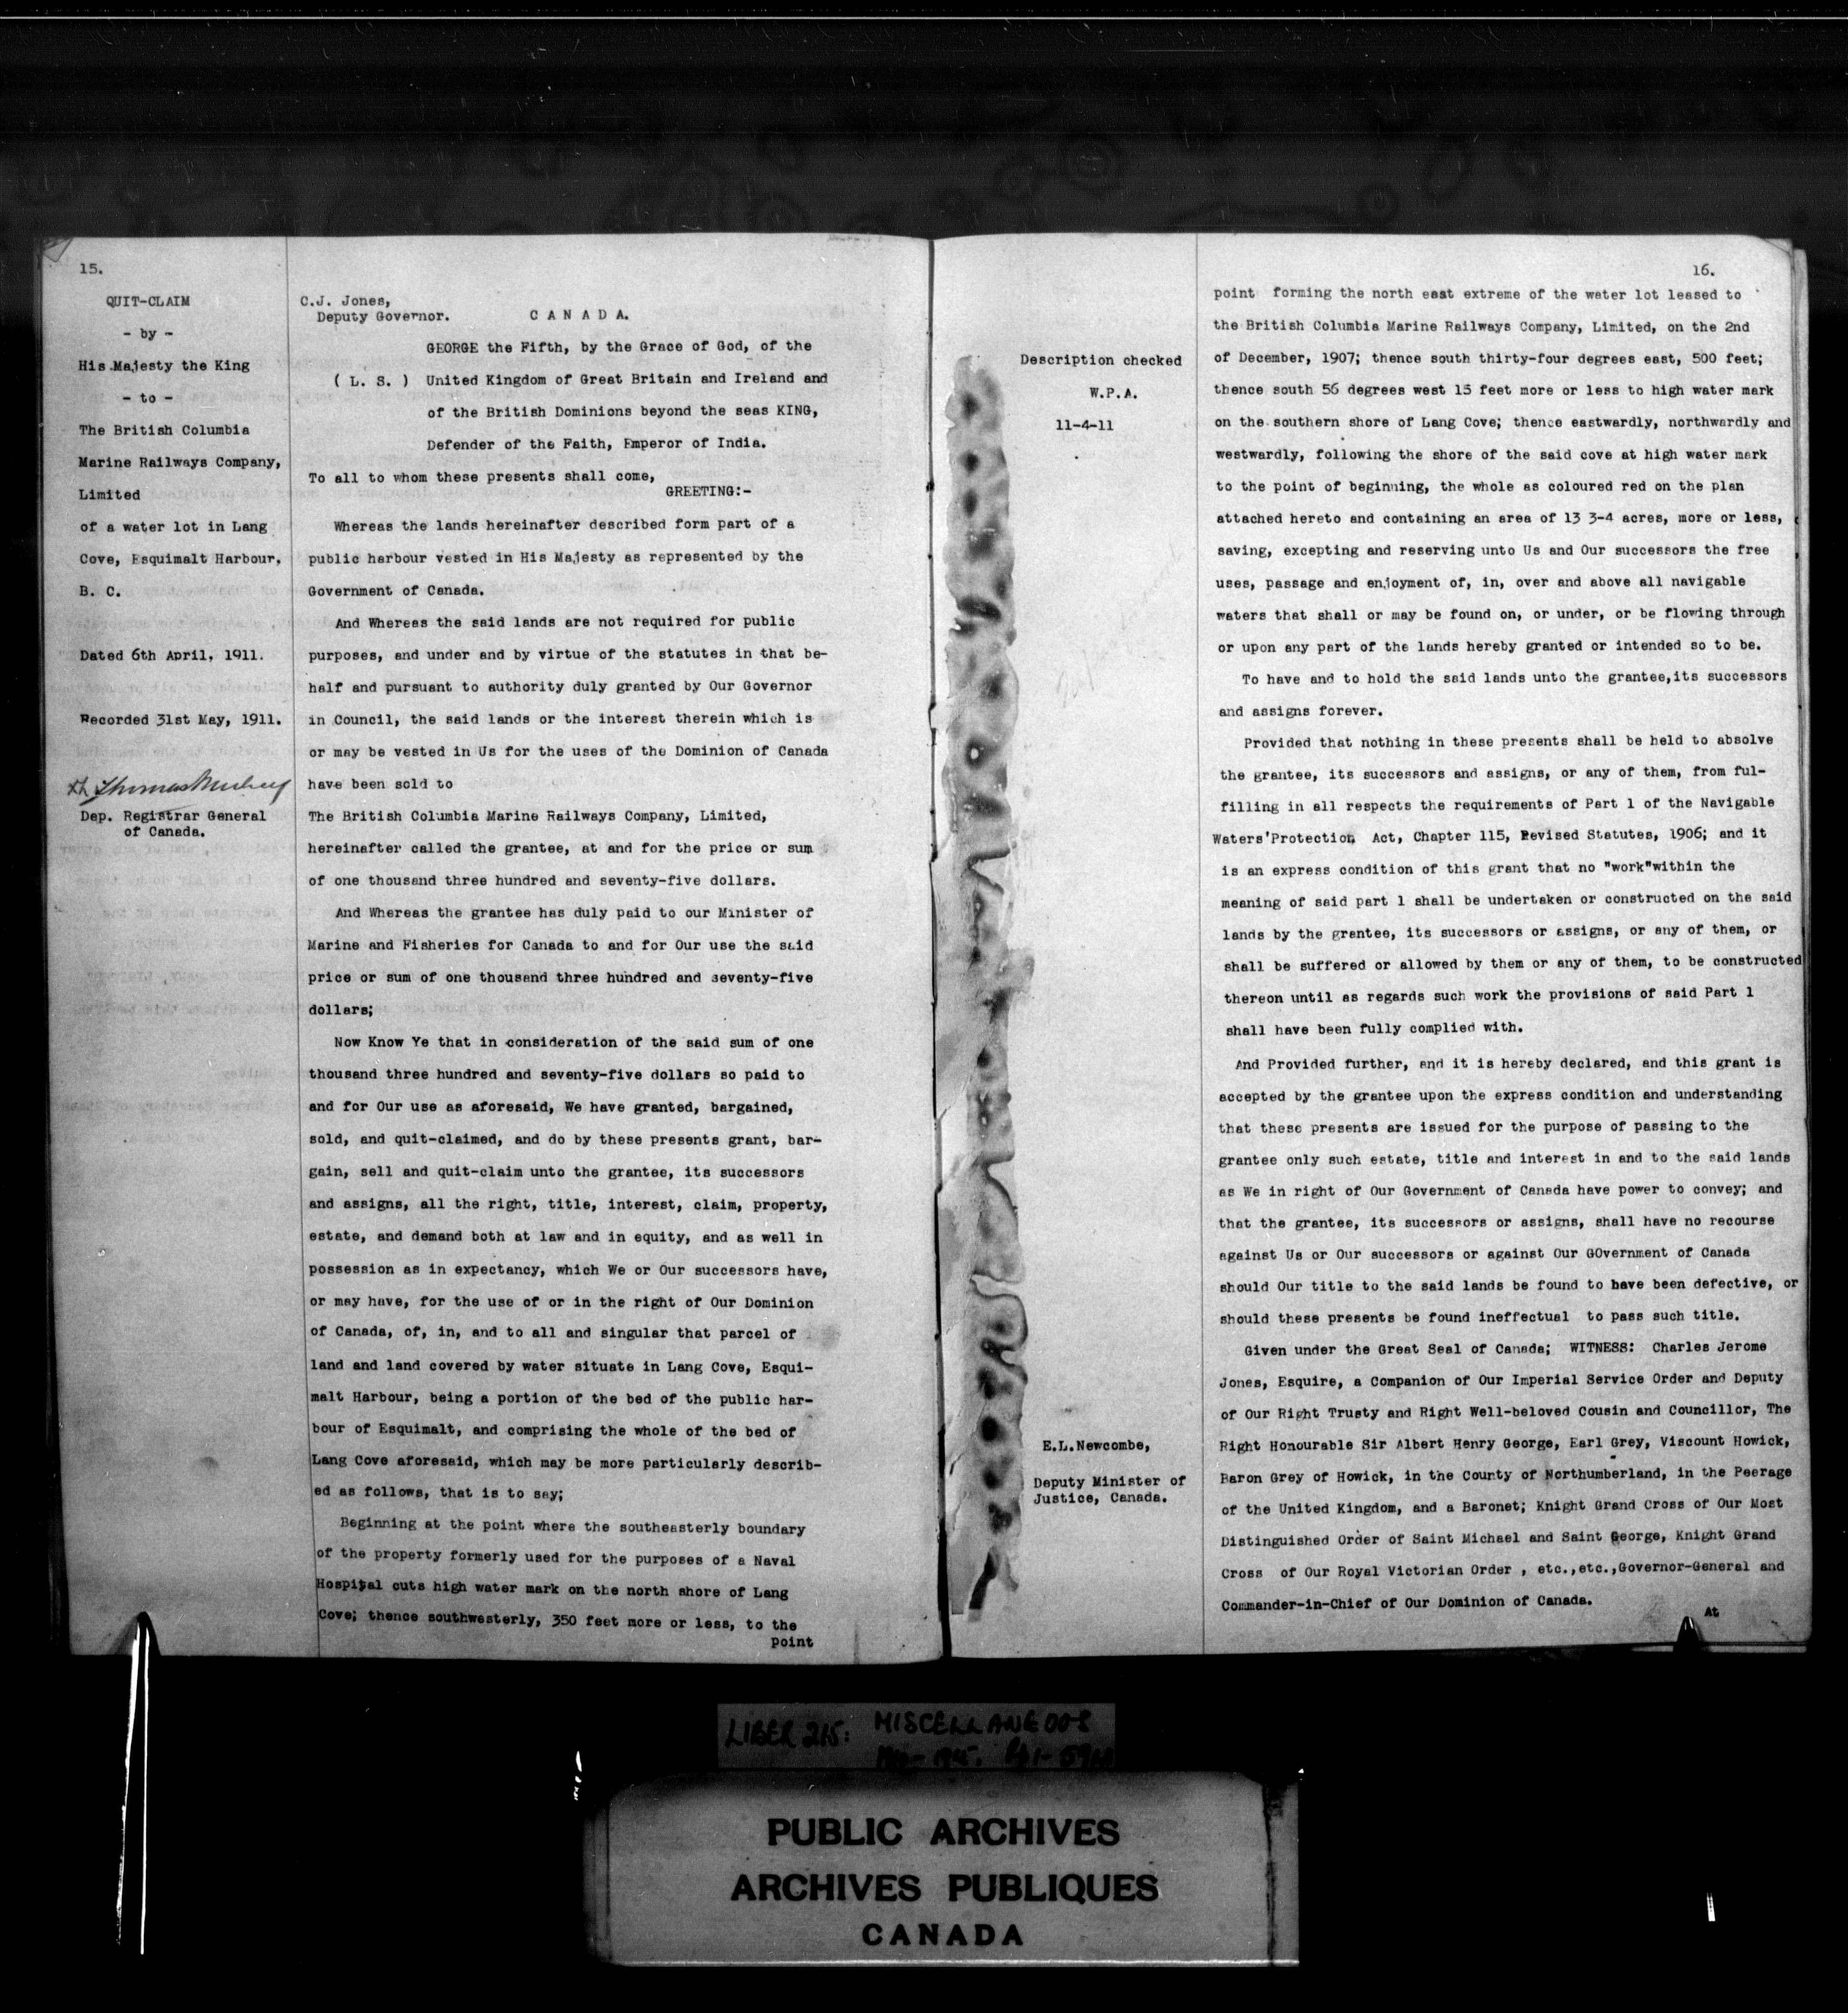 15.
QUIT-CLAIM
- by -
His Majesty the King
- to -
The British Columbia
Marine Railways Company,
Limited
of a water lot in Lang
Cove, Esquimalt Harbour,
B. C.
Dated 6th April, 1911.
Recorded 31st May, 1911.
Thomas
Dep. Registrar General
of Canada.
C.J. Jones,
Deputy Governor.
C A N A D A.
GEORGE the Fifth, by the Grace of God, of the
( L. S. ) United Kingdom of Great Britain and Ireland and
of the British Dominions beyond the seas KING,
Defender of the Faith, Emperor of India.
To all to whom these presents shall come,
GREETING:-
Whereas the lands hereinafter described form part of a
public harbour vested in His Majesty as represented by the
Government of Canada.
And Whereas the said lands are not required for public
purposes, and under and by virtue of the statutes in that be-
half and pursuant to authority duly granted by Our Governor
in Council, the said lands or the interest therein which is
or may be vested in Us for the uses of the Dominion of Canada
have been sold to
The British Columbia Marine Railways Company, Limited,
hereinafter called the grantee, at and for the price or sum
of one thousand three hundred and seventy-five dollars.
And Whereas the grantee has duly paid to our Minister of
Marine and Fisheries for Canada to and for Our use the said
price or sum of one thousand three hundred and seventy-five
dollars;
Now Know Ye that in consideration of the said sum of one
thousand three hundred and seventy-five dollars so paid to
and for Our use as aforesaid, We have granted, bargained,
sold, and quit-claimed, and do by these presents grant, bar-
gain, sell and quit-claim unto the grantee, its successors
and assigns, all the right, title, interest, claim, property,
estate, and demand both at law and in equity, and as well in
possession as in expectancy, which We or Our successors have,
or may have, for the use of or in the right of Our Dominion
of Canada, of, in, and to all and singular that parcel of
land and land covered by water situate in Lang Cove, Esqui-
malt Harbour, being a portion of the bed of the public har-
bour of Esquimalt, and comprising the whole of the bed of
Lang Cove aforesaid, which may be more particularly describ-
ed as follows, that is to say;
Beginning at the point where the southeasterly boundary
of the property formerly used for the purposes of a Naval
Hospital cuts high water mark on the north shore of Lang
Cove; thence southwesterly, 350 feet more or less, to the
point
16.
Description checked
W.P.A.
11-4-11
E.L.Newcombe,
Deputy Minister of
Justice, Canada.
point forming the north east extreme of the water lot leased to
the British Columbia Marine Railways Company, Limited, on the 2nd
of December, 1907; thence south thirty-four degrees east, 500 feet;
thence south 56 degrees west 15 feet more or less to high water mark
on the southern shore of Lang Cove; thence eastwardly, northwardly and
westwardly, following the shore of the said cove at high water mark
to the point of beginning, the whole as coloured red on the plan
attached hereto and containing an area of 13 3-4 acres, more or less,
saving, excepting and reserving unto Us and Our successors the free
uses, passage and enjoyment of, in, over and above all navigable
waters that shall or may be found on, or under, or be flowing through
or upon any part of the lands hereby granted or intended so to be.
To have and to hold the said lands unto the grantee,its successors
and assigns forever.
Provided that nothing in these presents shall be held to absolve
the grantee, its successors and assigns, or any of them, from ful-
filling in all respects the requirements of Part 1 of the Navigable
Waters'Protection Act, Chapter 115, Revised Statutes, 1906; and it
is an express condition of this grant that no "work"within the
meaning of said part 1 shall be undertaken or constructed on the said
lands by the grantee, its successors or assigns, or any of them, or
shall be suffered or allowed by them or any of them, to be constructed
thereon until as regards such work the provisions of said Part 1
shall have been fully complied with.
And Provided further, and it is hereby declared, and this grant is
accepted by the grantee upon the express condition and understanding
that these presents are issued for the purpose of passing to the
grantee only such estate, title and interest in and to the said lands
as We in right of Our Government of Canada have power to convey; and
that the grantee, its successors or assigns, shall have no recourse
against Us or Our successors or against Our GOvernment of Canada
should Our title to the said lands be found to have been defective, or
should these presents be found ineffectual to pass such title.
Given under the Great Seal of Canada; WITNESS: Charles Jerome
Jones, Esquire, a Companion of Our Imperial Service Order and Deputy
of Our Right Trusty and Right Well-beloved Cousin and Councillor, The
Right Honourable Sir Albert Henry George, Earl Grey, Viscount Howick,
Baron Grey of Howick, in the County of Northumberland, in the Peerage
of the United Kingdom, and a Baronet; Knight Grand Cross of Our Most
Distinguished Order of Saint Michael and Saint George, Knight Grand
Cross of Our Royal Victorian Order , etc.,etc.,Governor-General and
Commander-in-Chief of Our Dominion of Canada.
At
LIBER 215: MISCELLANEOUS
PUBLIC ARCHIVES
ARCHIVES PUBLIQUES
CANADA